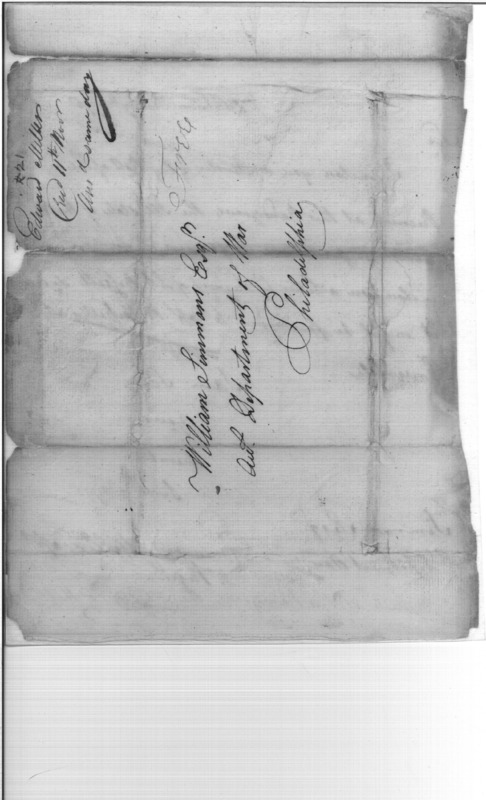 Free
William Simmons Esqr.
Acct. Department of War
Philadelphia
R 21
Edward Miller
Recd 11th Novr
Ans same day